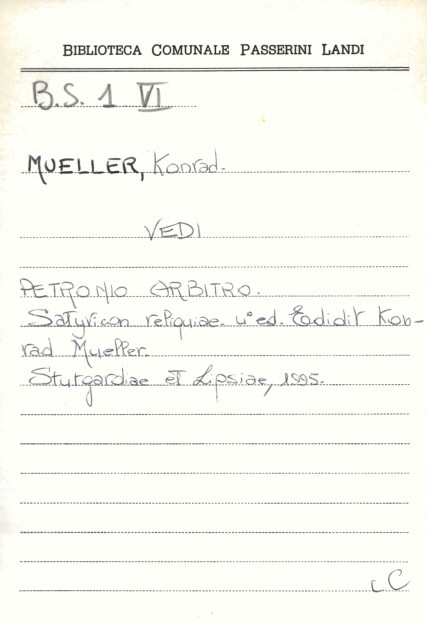 BIBLIOTECA COMUNALE PASSERINI LANDI
B.S. 1 VI
MUELLER, Konrad.
VEDI
PETRONIO ARBITRO.
Satyricon reliquiae. ed. Edidit Kon-
rad Mueller.
Stutgardiae et Lipsiae, 1995.